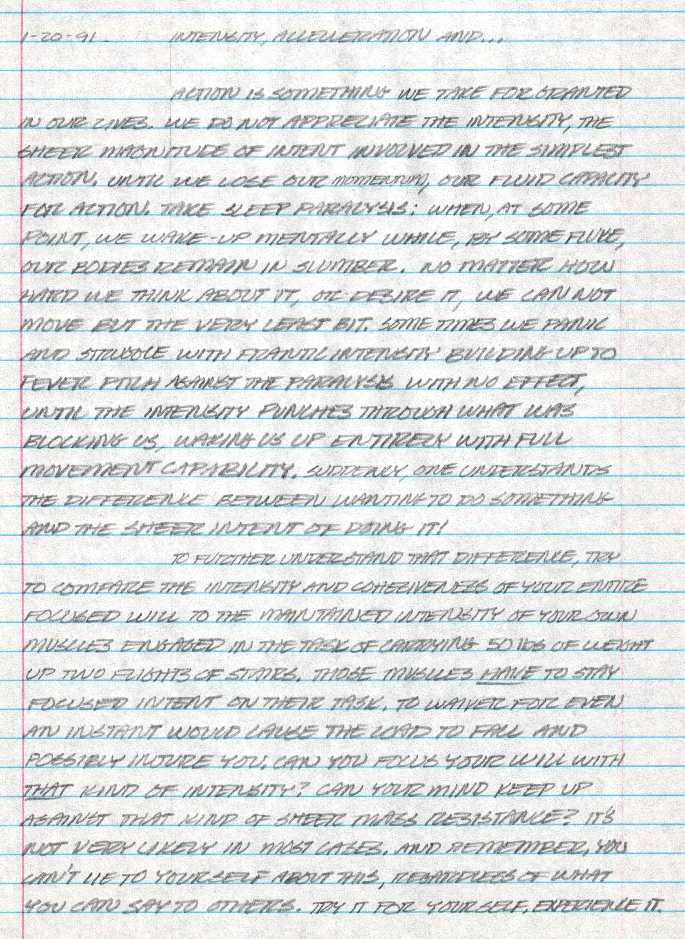 1-20-91. INTENSITY, ACCELLERATION AND...
ACTION IS SOMETHING WE TAKE FOR GRANTED
IN OUR LIVES. WE DO NOT APPRECIATE THE INTENSITY, THE
SHEER MAGNITUDE OF INTENT INVOLVED IN THE SIMPLEST
ACTION. UNTIL WE LOSE OUR MOMENTUM, OUR FLUID CAPACITY
FOR ACTION. TAKE SLEEP PARALYSIS: WHEN, AT SOME
POINT, WE WAKE-UP MENTALLY WHILE, BY SOME FLUKE,
OUR BODIES REMAIN IN SLUMBER. NO MATTER HOW
HARD WE THINK ABOUT IT, OR DESIRE IT, WE CAN NOT
MOVE BUT THE VERY LEAST BIT. SOMETIMES WE PANIC
AND STRUGGLE WITH FRANTIC INTENSITY BUILDING UP TO
FEVER PITCH AGAINST THE PARALYSIS WITH NO EFFECT,
UNTIL THE INTENSITY PUNCHES THROUGH WHAT WAS
BLOCKING US, WAKING US UP ENTIRELY WITH FULL
MOVEMENT CAPABILITY. SUDDENLY, ONE UNDERSTANDS
THE DIFFERENCE BETWEEN WANTING TO DO SOMETHING
AND THE SHEER INTENT OF DOING IT!
TO FURTHER UNDERSTAND THAT DIFFERENCE, TRY
TO COMPARE THE INTENSITY AND COHESIVENESS OF YOUR ENTIRE
FOCUSED WILL TO THE MAINTAINED INTENSITY OF YOUR OWN
MUSCLES ENGAGED IN THE TASK OF CARRYING 50 lbs OF WEIGHT
UP TWO FLIGHTS OF STAIRS. THOSE MUSCLES HAVE TO STAY
FOCUSED INTENT ON THEIR TASK. TO WAIVER FOR EVEN
AN INSTANT WOULD CAUSE THE LOAD TO FALL AND
POSSIBLY INJURE YOU. CAN YOU FOCUS YOUR WILL WITH
THAT KIND OF INTENSITY? CAN YOUR MIND KEEP UP
AGAINST THAT KIND OF SHEER MASS RESISTANCE? IT'S
NOT VERY LIKELY IN MOST CASES. AND REMEMBER, YOU
CAN'T LIE TO YOURSELF ABOUT THIS, REGARDLESS OF WHAT
YOU CAN SAY TO OTHERS. TRY IT FOR YOURSELF, EXPERIENCE IT.